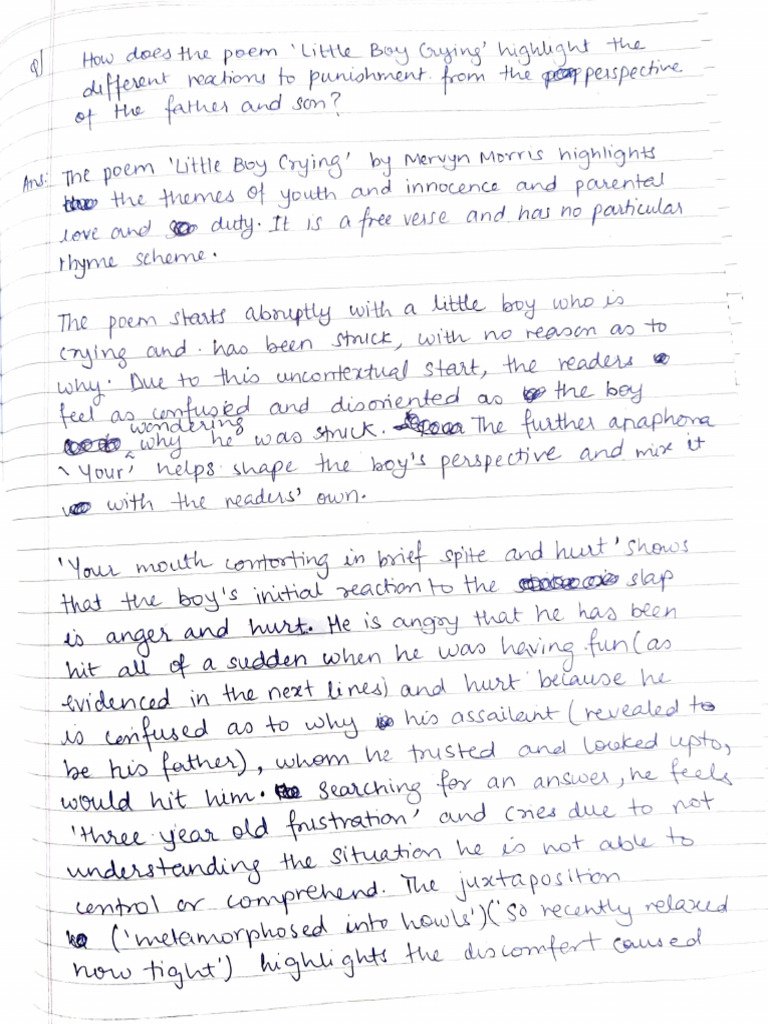 Q) How does the poem 'Little Boy Crying' highlight the
different reactions to punishment from the perspective
of the father and son?
Ans: The poem 'Little Boy Crying' by Mervyn Morris highlights
the themes of youth and innocence and parental
love and duty. It is a free verse and has no particular
rhyme scheme.
The poem starts abruptly with a little boy who is
crying and has been struck, with no reason as to
why. Due to this uncontextual start, the readers
feel as confused and disoriented as the boy
wondering
why he was struck. The further anaphora
'Your' helps shape the boy's perspective and mix it
with the readers' own.
'Your mouth contorting in brief spite and hurt' shows
that the boy's initial reaction to the slap
is anger and hurt. He is angry that he has been
hit all of a sudden when he was having fun (as
evidenced in the next lines) and hurt because he
is confused as to why his assailant (revealed to
be his father), whom he trusted and looked upto,
would hit him. Searching for an answer, he feels
'three year old frustration' and cries due to not
understanding the situation he is not able to
control or comprehend. The juxtaposition
('metamorphosed into howls') ('so recently relaxed
now tight') highlights the discomfert caused